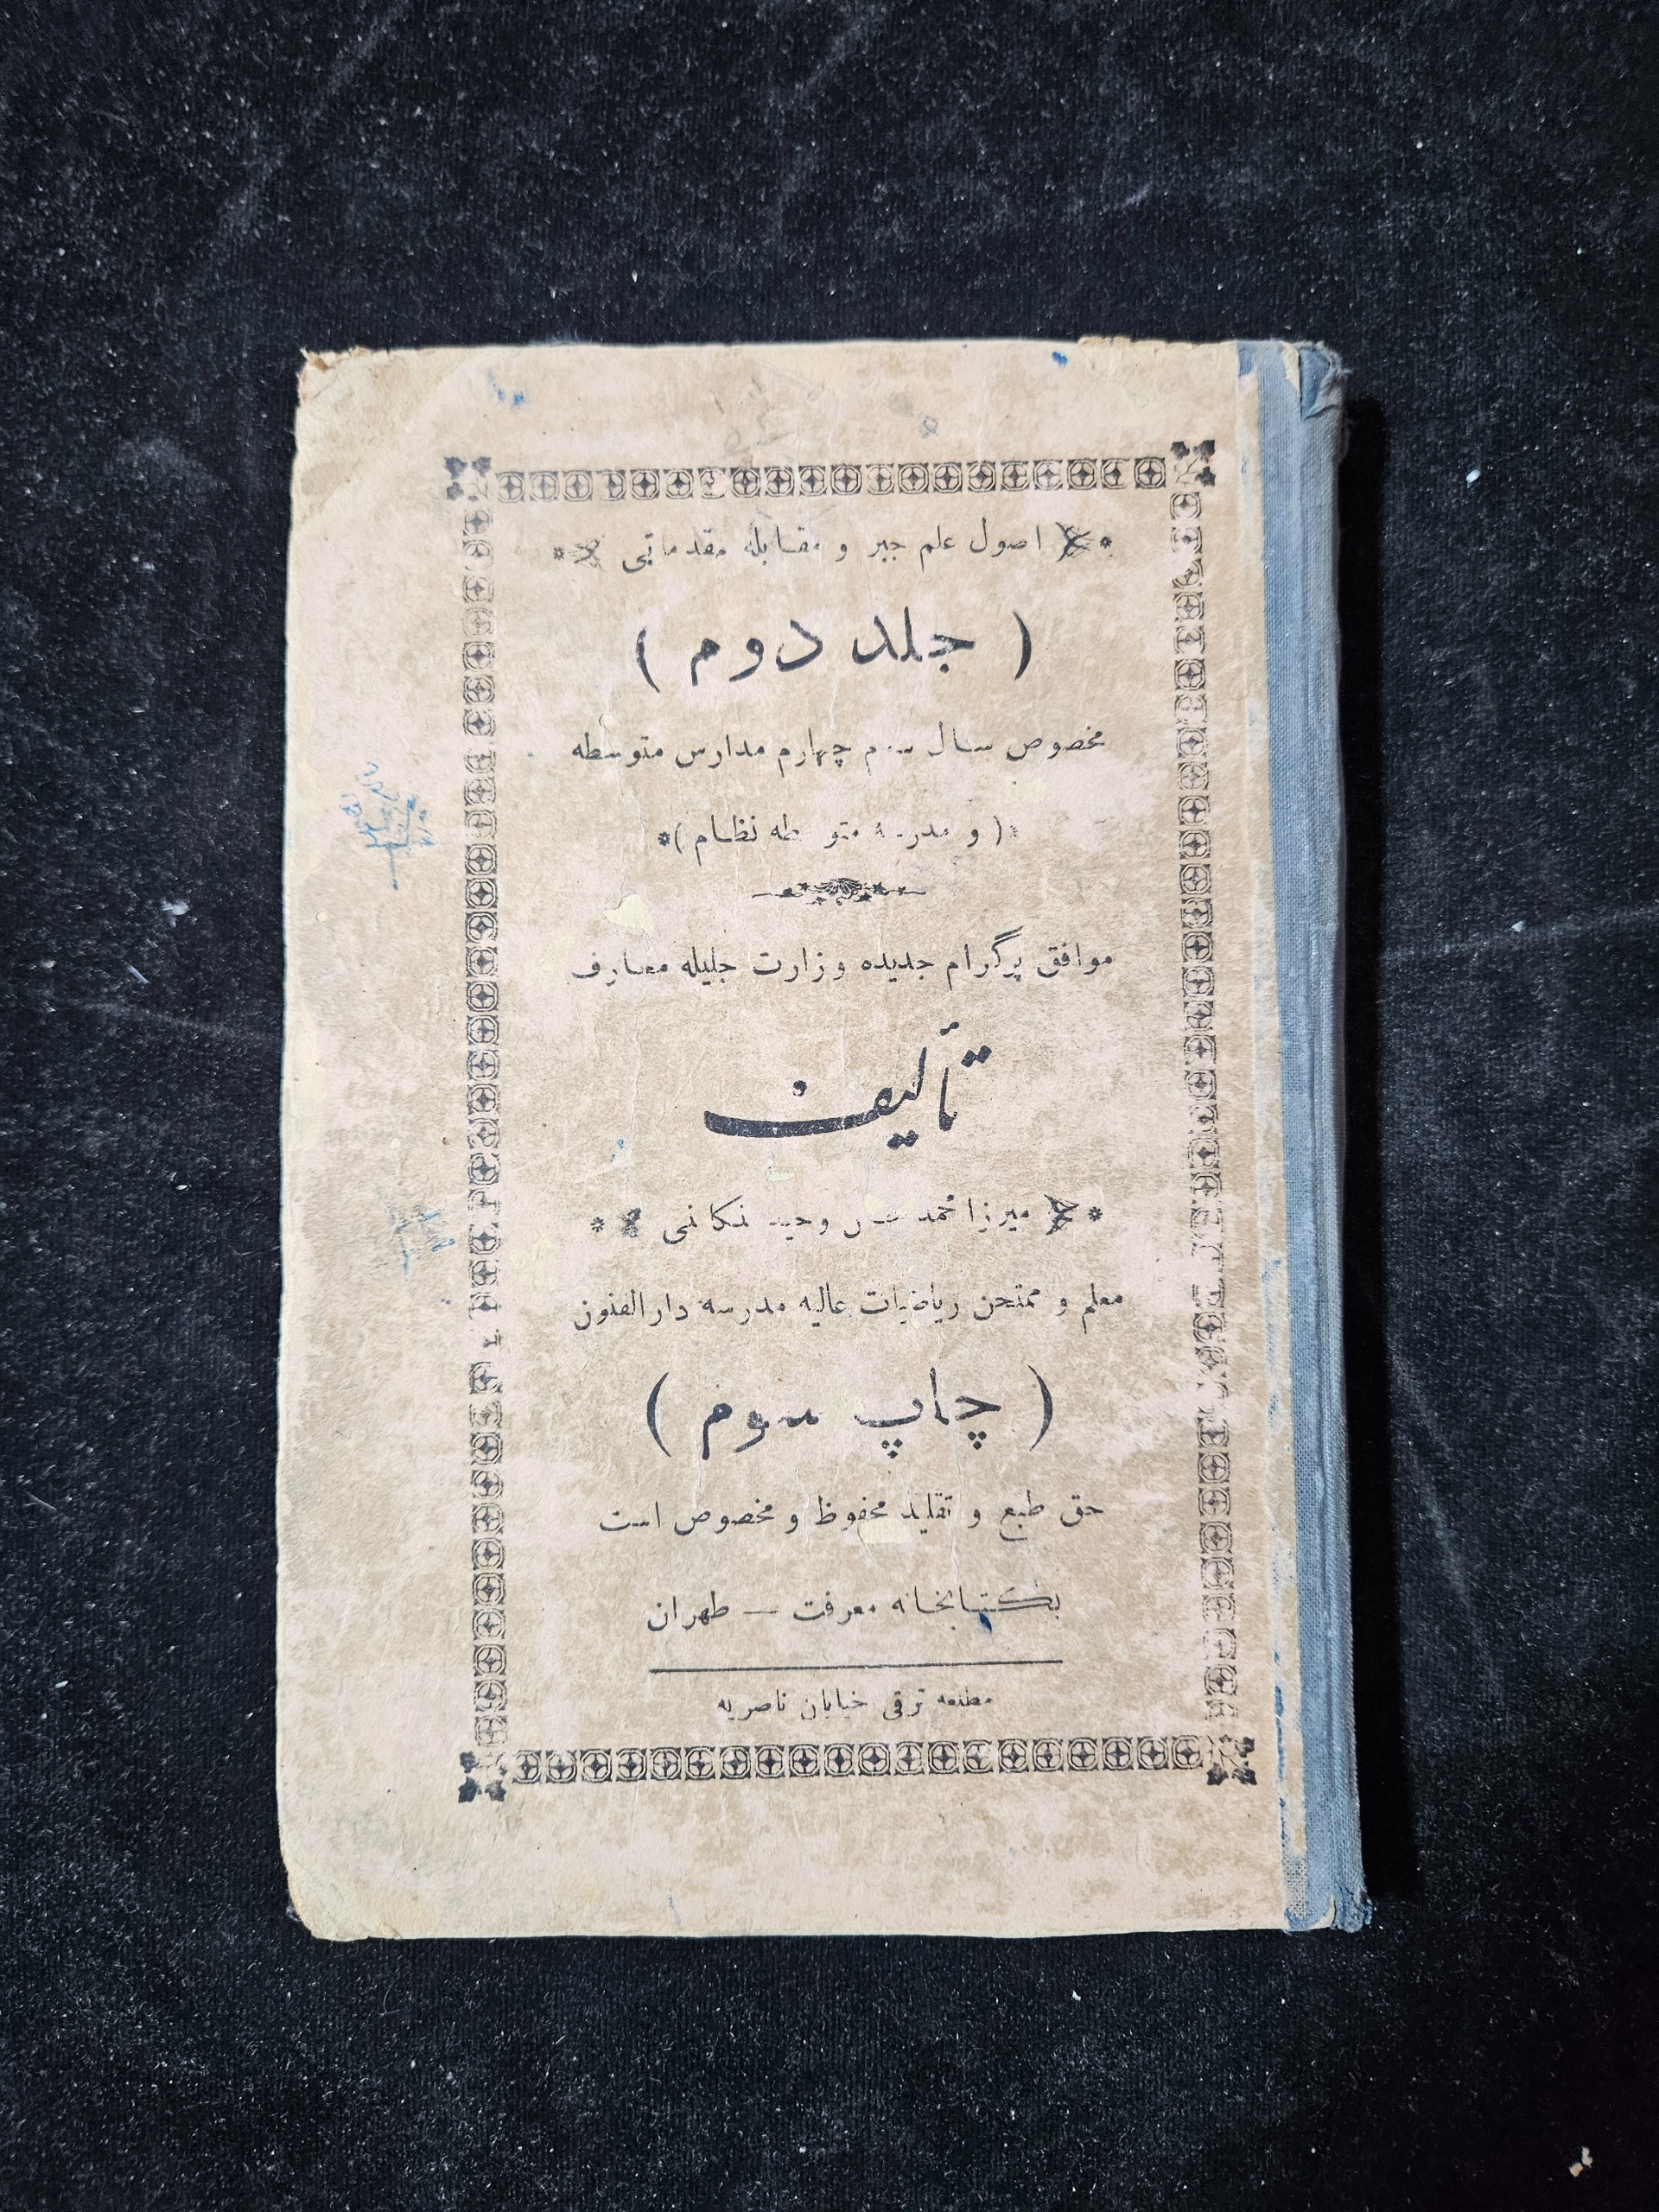 اصول علم جبر و مقابله مقدماتی
( جلد دوم )
مخصوص سال سوم چهارم مدارس متوسطه
( و مدرسه متوسطه نظام )
موافق پرگرام جدیده وزارت جلیله معارف
تألیف
میرزا محمد خان وحید تنکابنی
معلم و ممتحن ریاضیات عالیه مدرسه دارالفنون
( چاپ سوم )
حق طبع و تقلید محفوظ و مخصوص است
بکتابخانه معرفت — طهران
مطبعه ترقی خیابان ناصریه